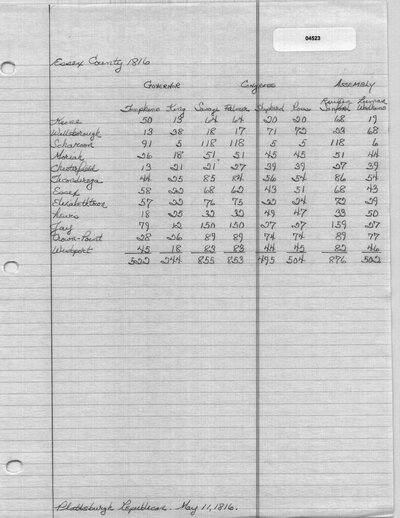 04523
Essex County 1816
Governor Congress Assembly
Reuben Luman
Tompkins King Savage Palmer Shepherd Pond Sanford Wadhams
Keene 50 13 64 64 20 20 68 19
Willsborough 13 28 18 17 71 72 23 68
Schroon 91 5 118 118 5 5 118 6
Moriah 26 18 51 51 45 45 51 44
Chesterfield 13 21 21 27 39 39 27 39
Ticonderoga 44 25 85 84 56 54 86 54
Essex 58 22 68 62 43 51 68 43
Elizabethtown 57 22 76 75 22 24 72 29
Lewis 18 25 32 32 49 47 33 50
Jay 79 12 150 150 27 27 159 27
Crown-Point 28 26 89 89 74 74 89 77
Westport 45 18 83 83 44 45 82 46
522 244 855 853 495 504 876 502
Plattsburgh Republican. May 11, 1816.